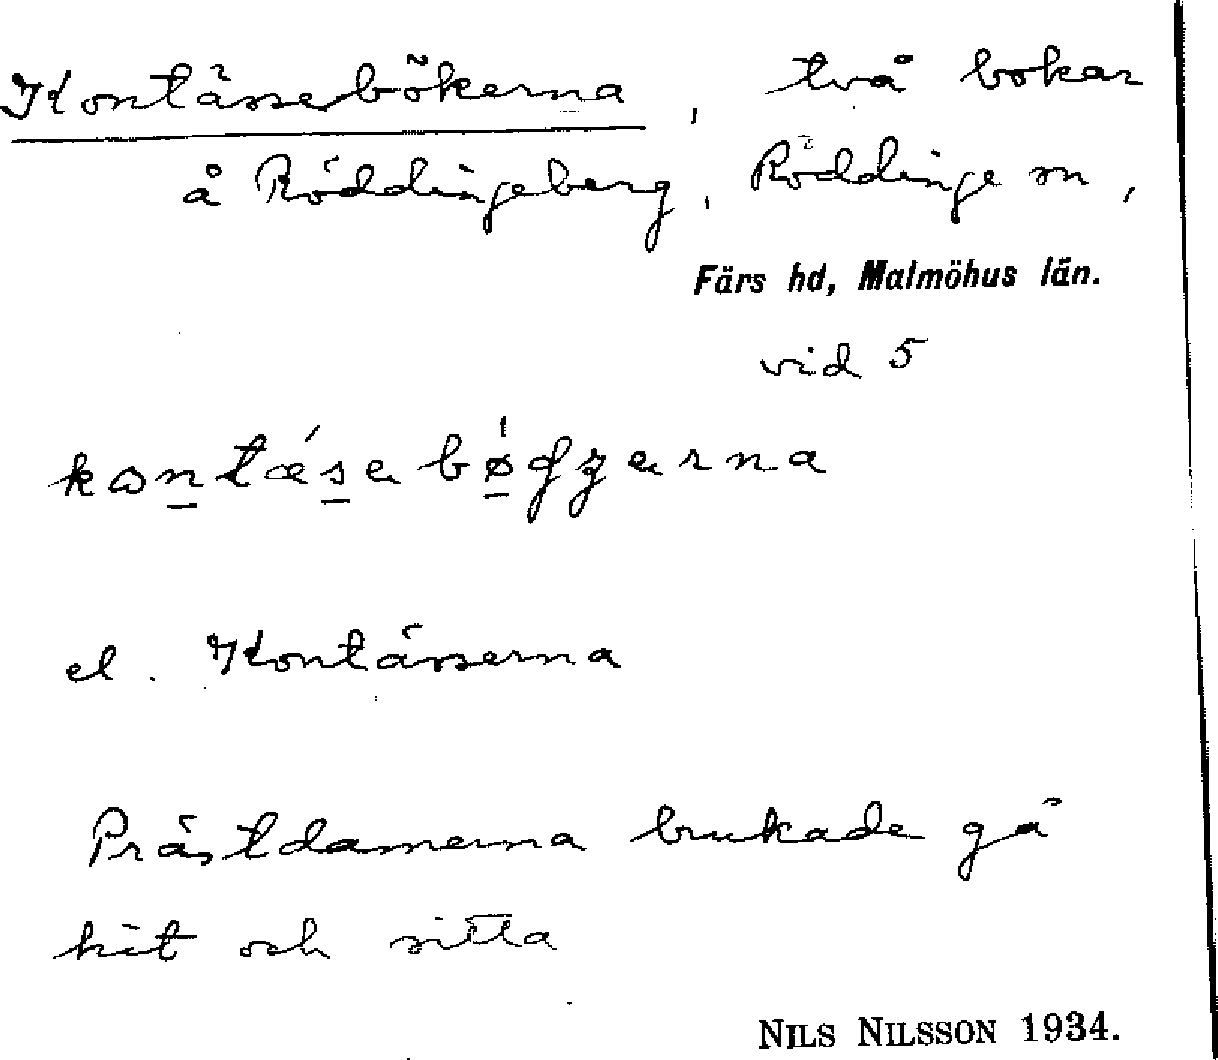 Kontässebökerna, två bokar
å Röddingeberg, Röddinge sn,
Färs hd, Malmöhus län.
vid 5
kɷntǽsebø̍ɡʒerna
el. Kontässerna
Prästdamerna brukade gå
hit och sitta
NILS NILSSON 1934.